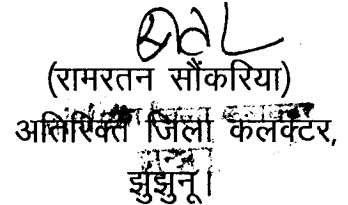 (रामरतन सौंकरिया)
अतिरिक्त जिला कलक्टर,
झुंझुनू।